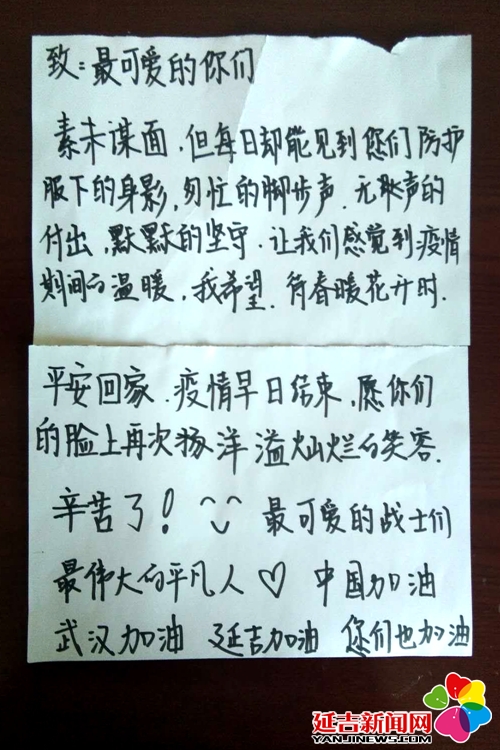 致：最可爱的你们
素未谋面，但每日却能见到您们防护
服下的身影，匆忙的脚步声．无声的
付出，默默的坚守．让我们感觉到疫情
期间的温暖，我希望．待春暖花开时．
平安回家．疫情早日结束，愿你们
的脸上再次扬洋溢灿烂的笑容．
辛苦了！ 最可爱的战士们
最伟大的平凡人♡ 中国加油
武汉加油 延吉加油 您们也加油
延吉新闻网
YANJINEWS.COM